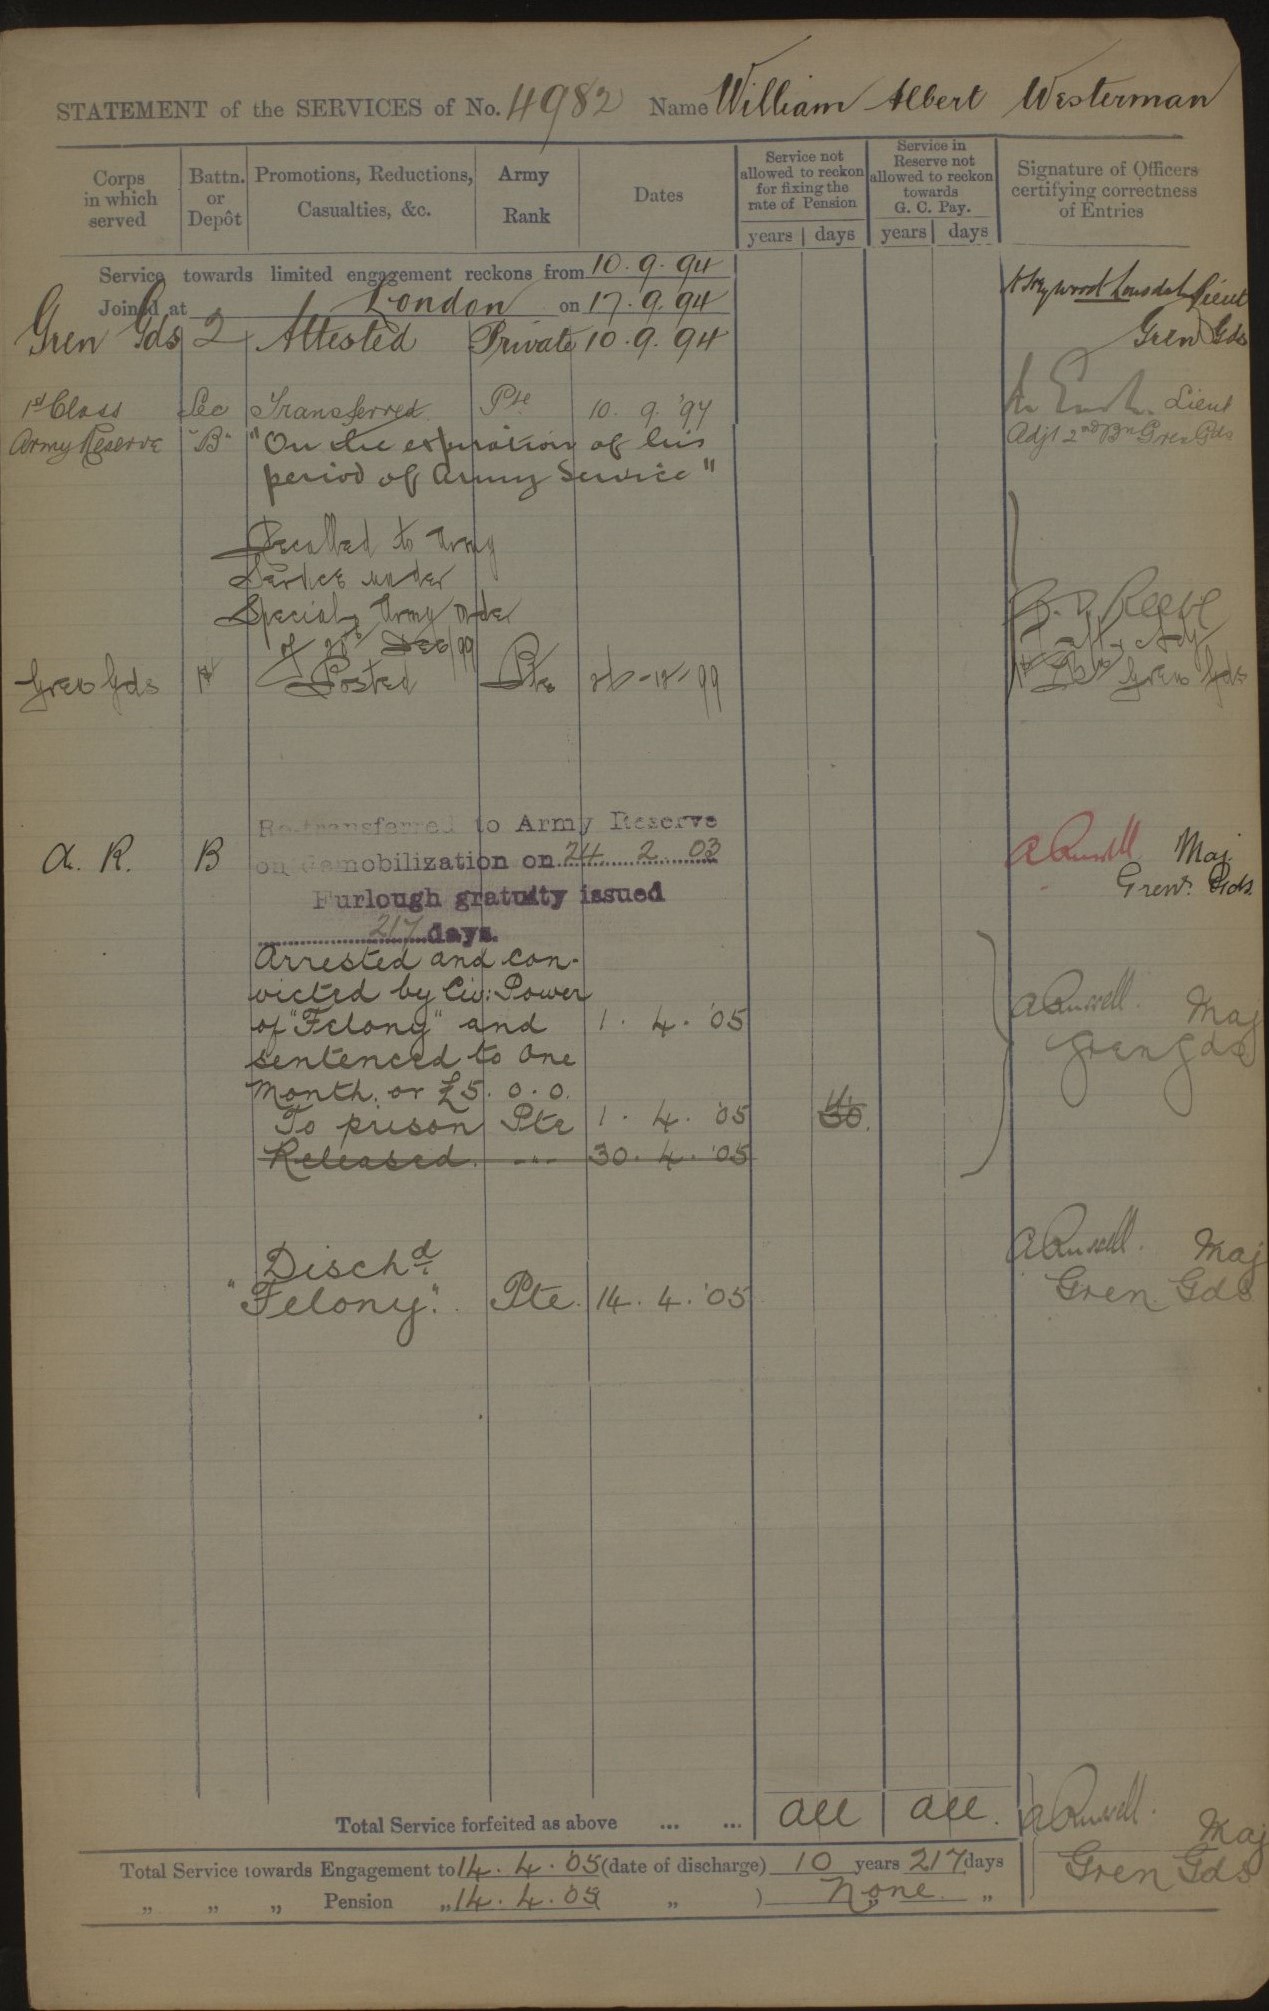 STATEMENT of the SERVICES of No. 4982 Name William Albert Westerman
Corps in which served
Battn. or Depôt
Promotions, Reductions, Casualties, &c.
Army Rank
Dates
Service not allowed to reckon for fixing the rate of Pension
years days
Service in Reserve not allowed to reckon towards G. C. Pay.
years days
Signature of Officers certifying correctness of Entries
Service towards limited engagement reckons from 10.9.94
Joined at London on 17.9.94
Lieut
Gren Gds 2 Attested Private 10.9.94 Gren Gds
1st Class Sec Transferred Pte 10. 9. '97 Lieut
Army Reserve "B" "On the expiration of his Adjt 2nd Bn Gren Gds
period of Army Service"
Recalled to Army
Service under
Special Army Order
of Dec/99
Gren Gds 1st Posted Pte -12-99 1st Bn Gren Gds
Re-transferred to Army Reserve
A. R. B on Demobilization on 24 2 03 Maj.
Furlough gratuity issued Gren. Gds.
217 days.
Arrested and con-
victed by Civ: Power
of "Felony" and 1. 4. '05 Maj
sentenced to one Gren Gds
Month. or £5. 0. 0.
To prison Pte 1. 4. '05 14 30.
Released. -"- 30. 4. '05
Dischd Maj
"Felony". Pte. 14. 4. '05 Gren. Gds
Total Service forfeited as above ... ... all all. Maj
Total Service towards Engagement to 14. 4. '05 (date of discharge) 10 years 217 days Gren Gds
" " " Pension " 14. 4. 05 ( " ) None. " "